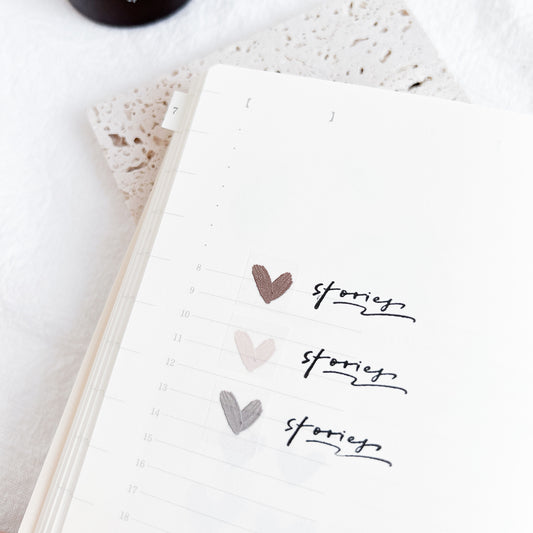 7
[ ]
8
9
stories
10
11
12
stories
13
14
stories
15
16
17
18